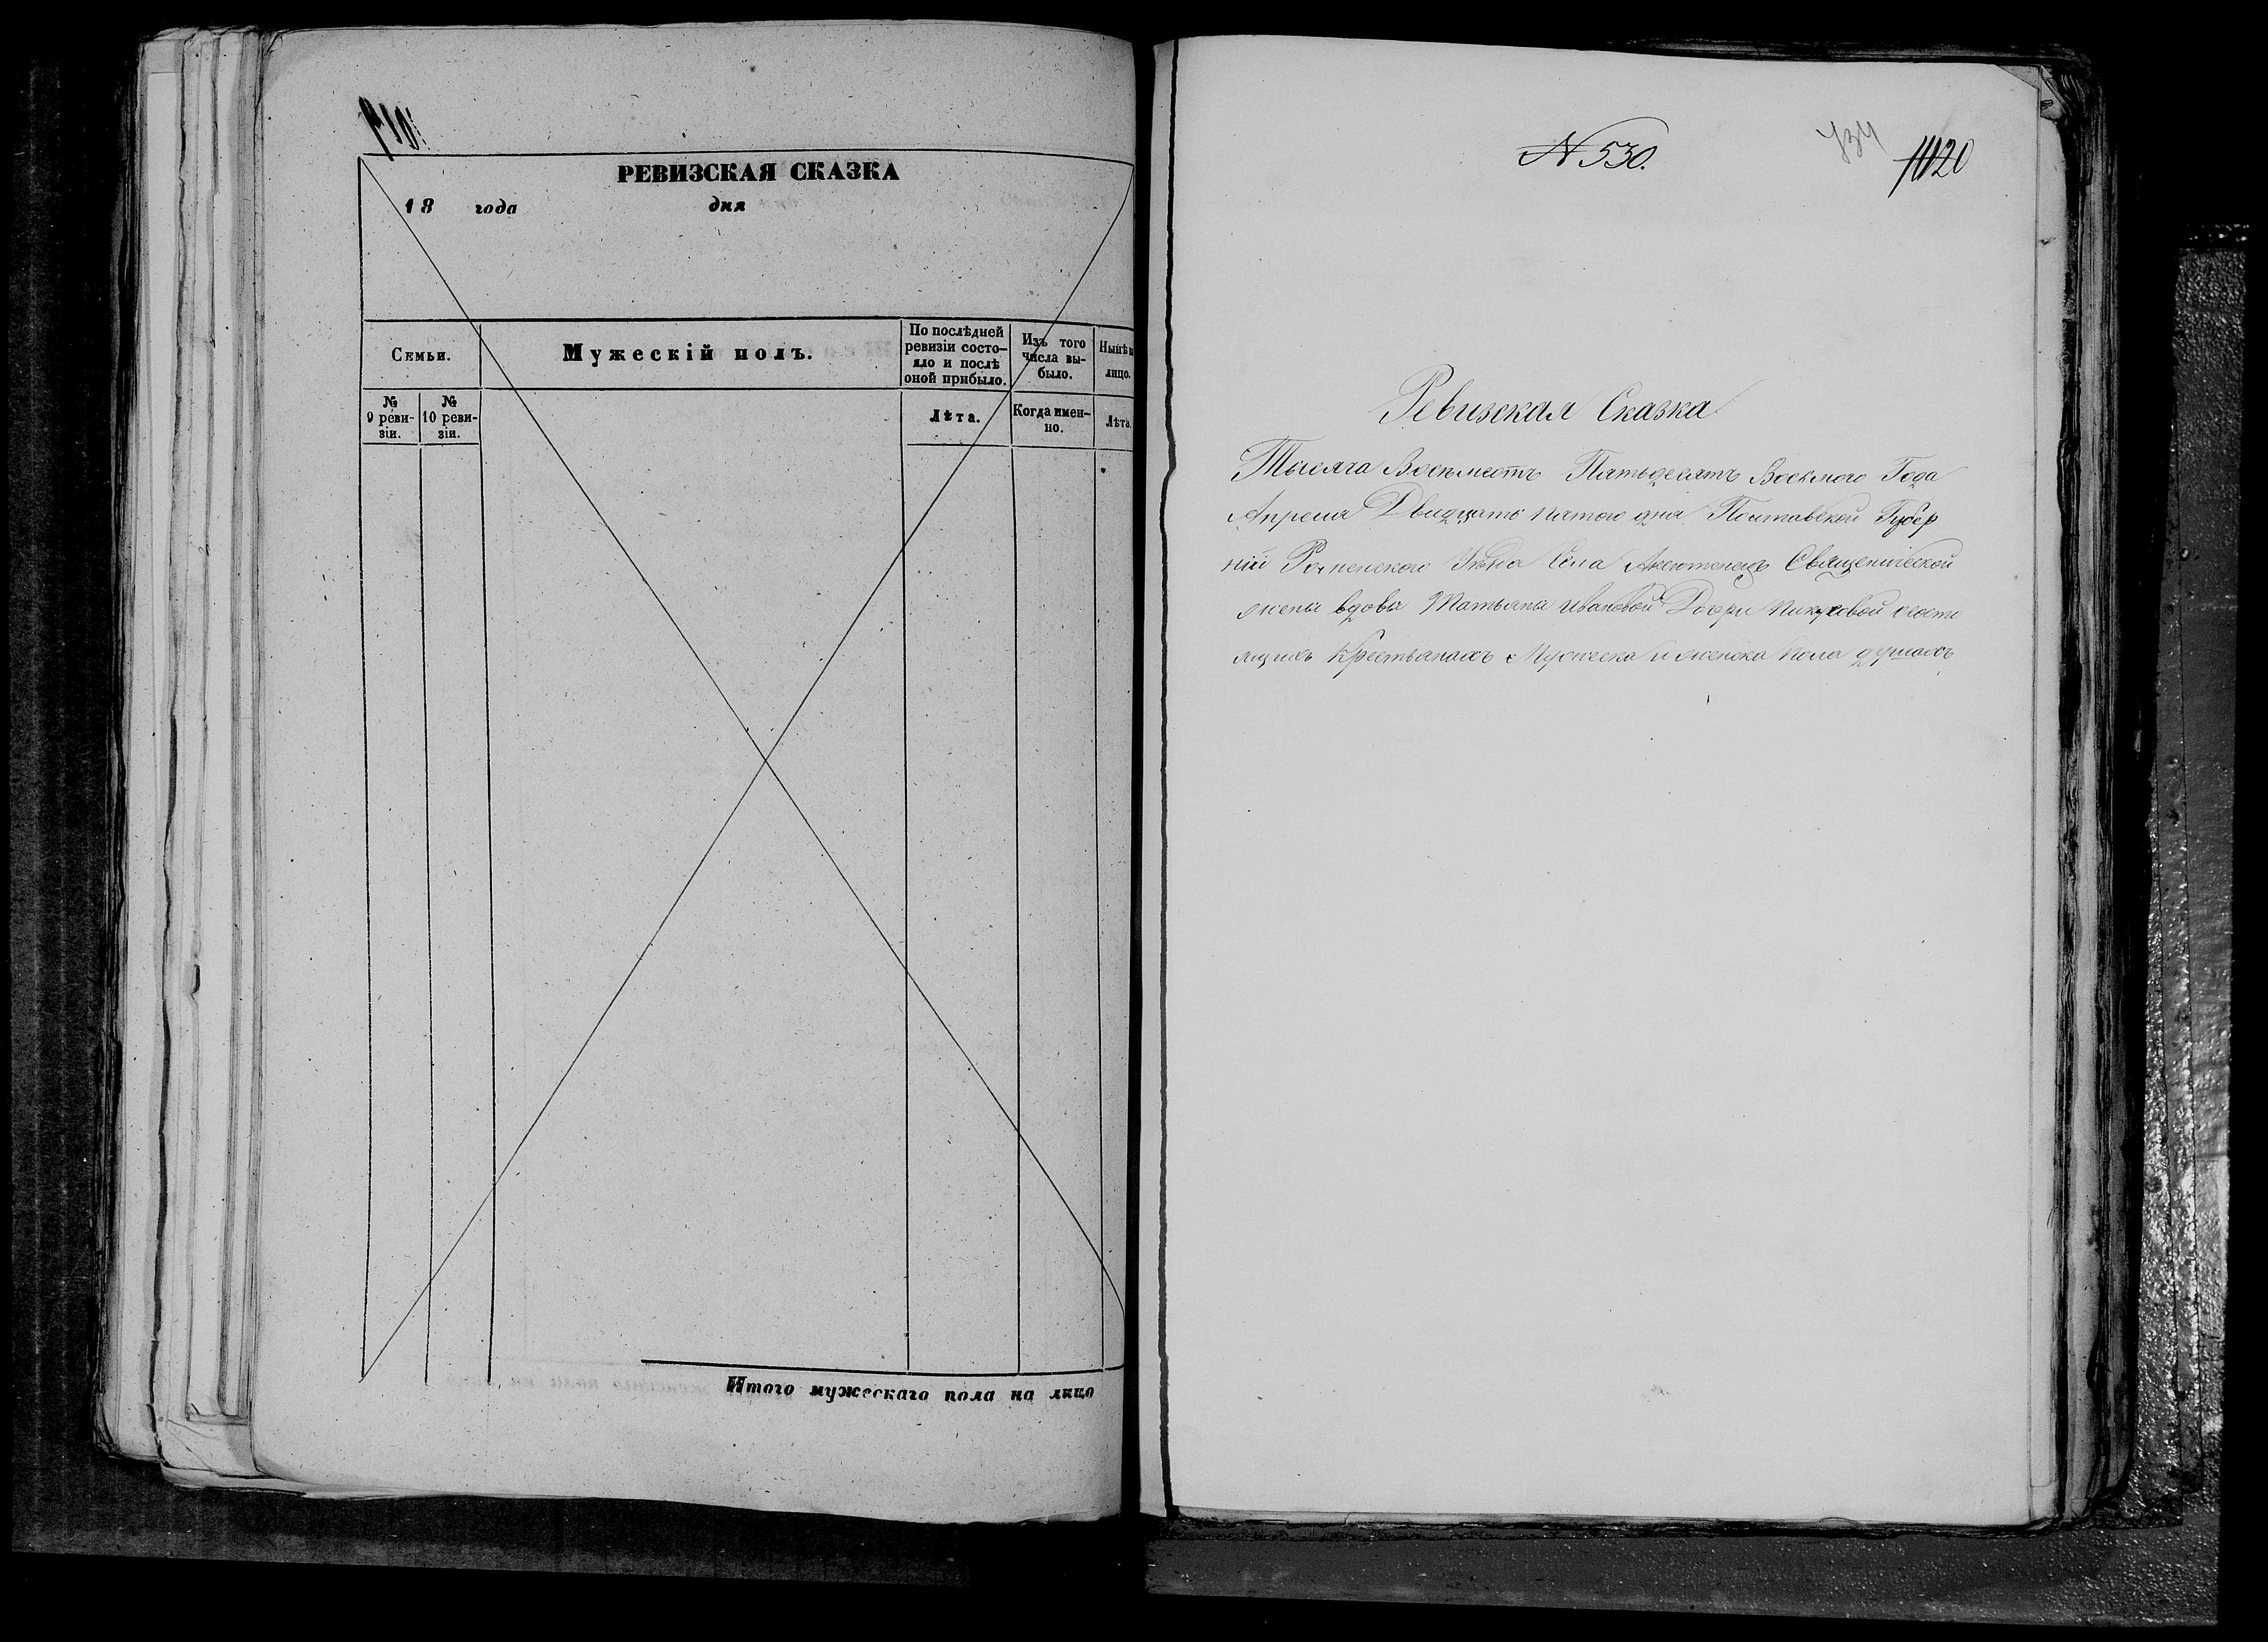 РЕВИЗСКАЯ СКАЗКА
18 года дня
Семьи.
Мужескій полъ.
По послѣдней ревизіи состо-
яло и послѣ оной прибыло.
Изъ того числа вы-
было.
Нынѣ
лицо.
№ 9 реви-
зіи.
№ 10 реви-
зіи.
Лѣта.
Когда имен-
но.
Лѣта.
Итого мужескаго пола на лицо
N 530.
Ревизская Сказка
Тысяча Восемсотъ Пятьдесятъ Восьмого Года
Апреля Двадцать пятого дня Полтавской Губер
ніи Роменского Уѣзда Села Аксютенецъ Священической
жены вдовы Татьяны Ивановой Дочери состо
ящихъ Крестьянахъ Мужеска и женска пола душахъ